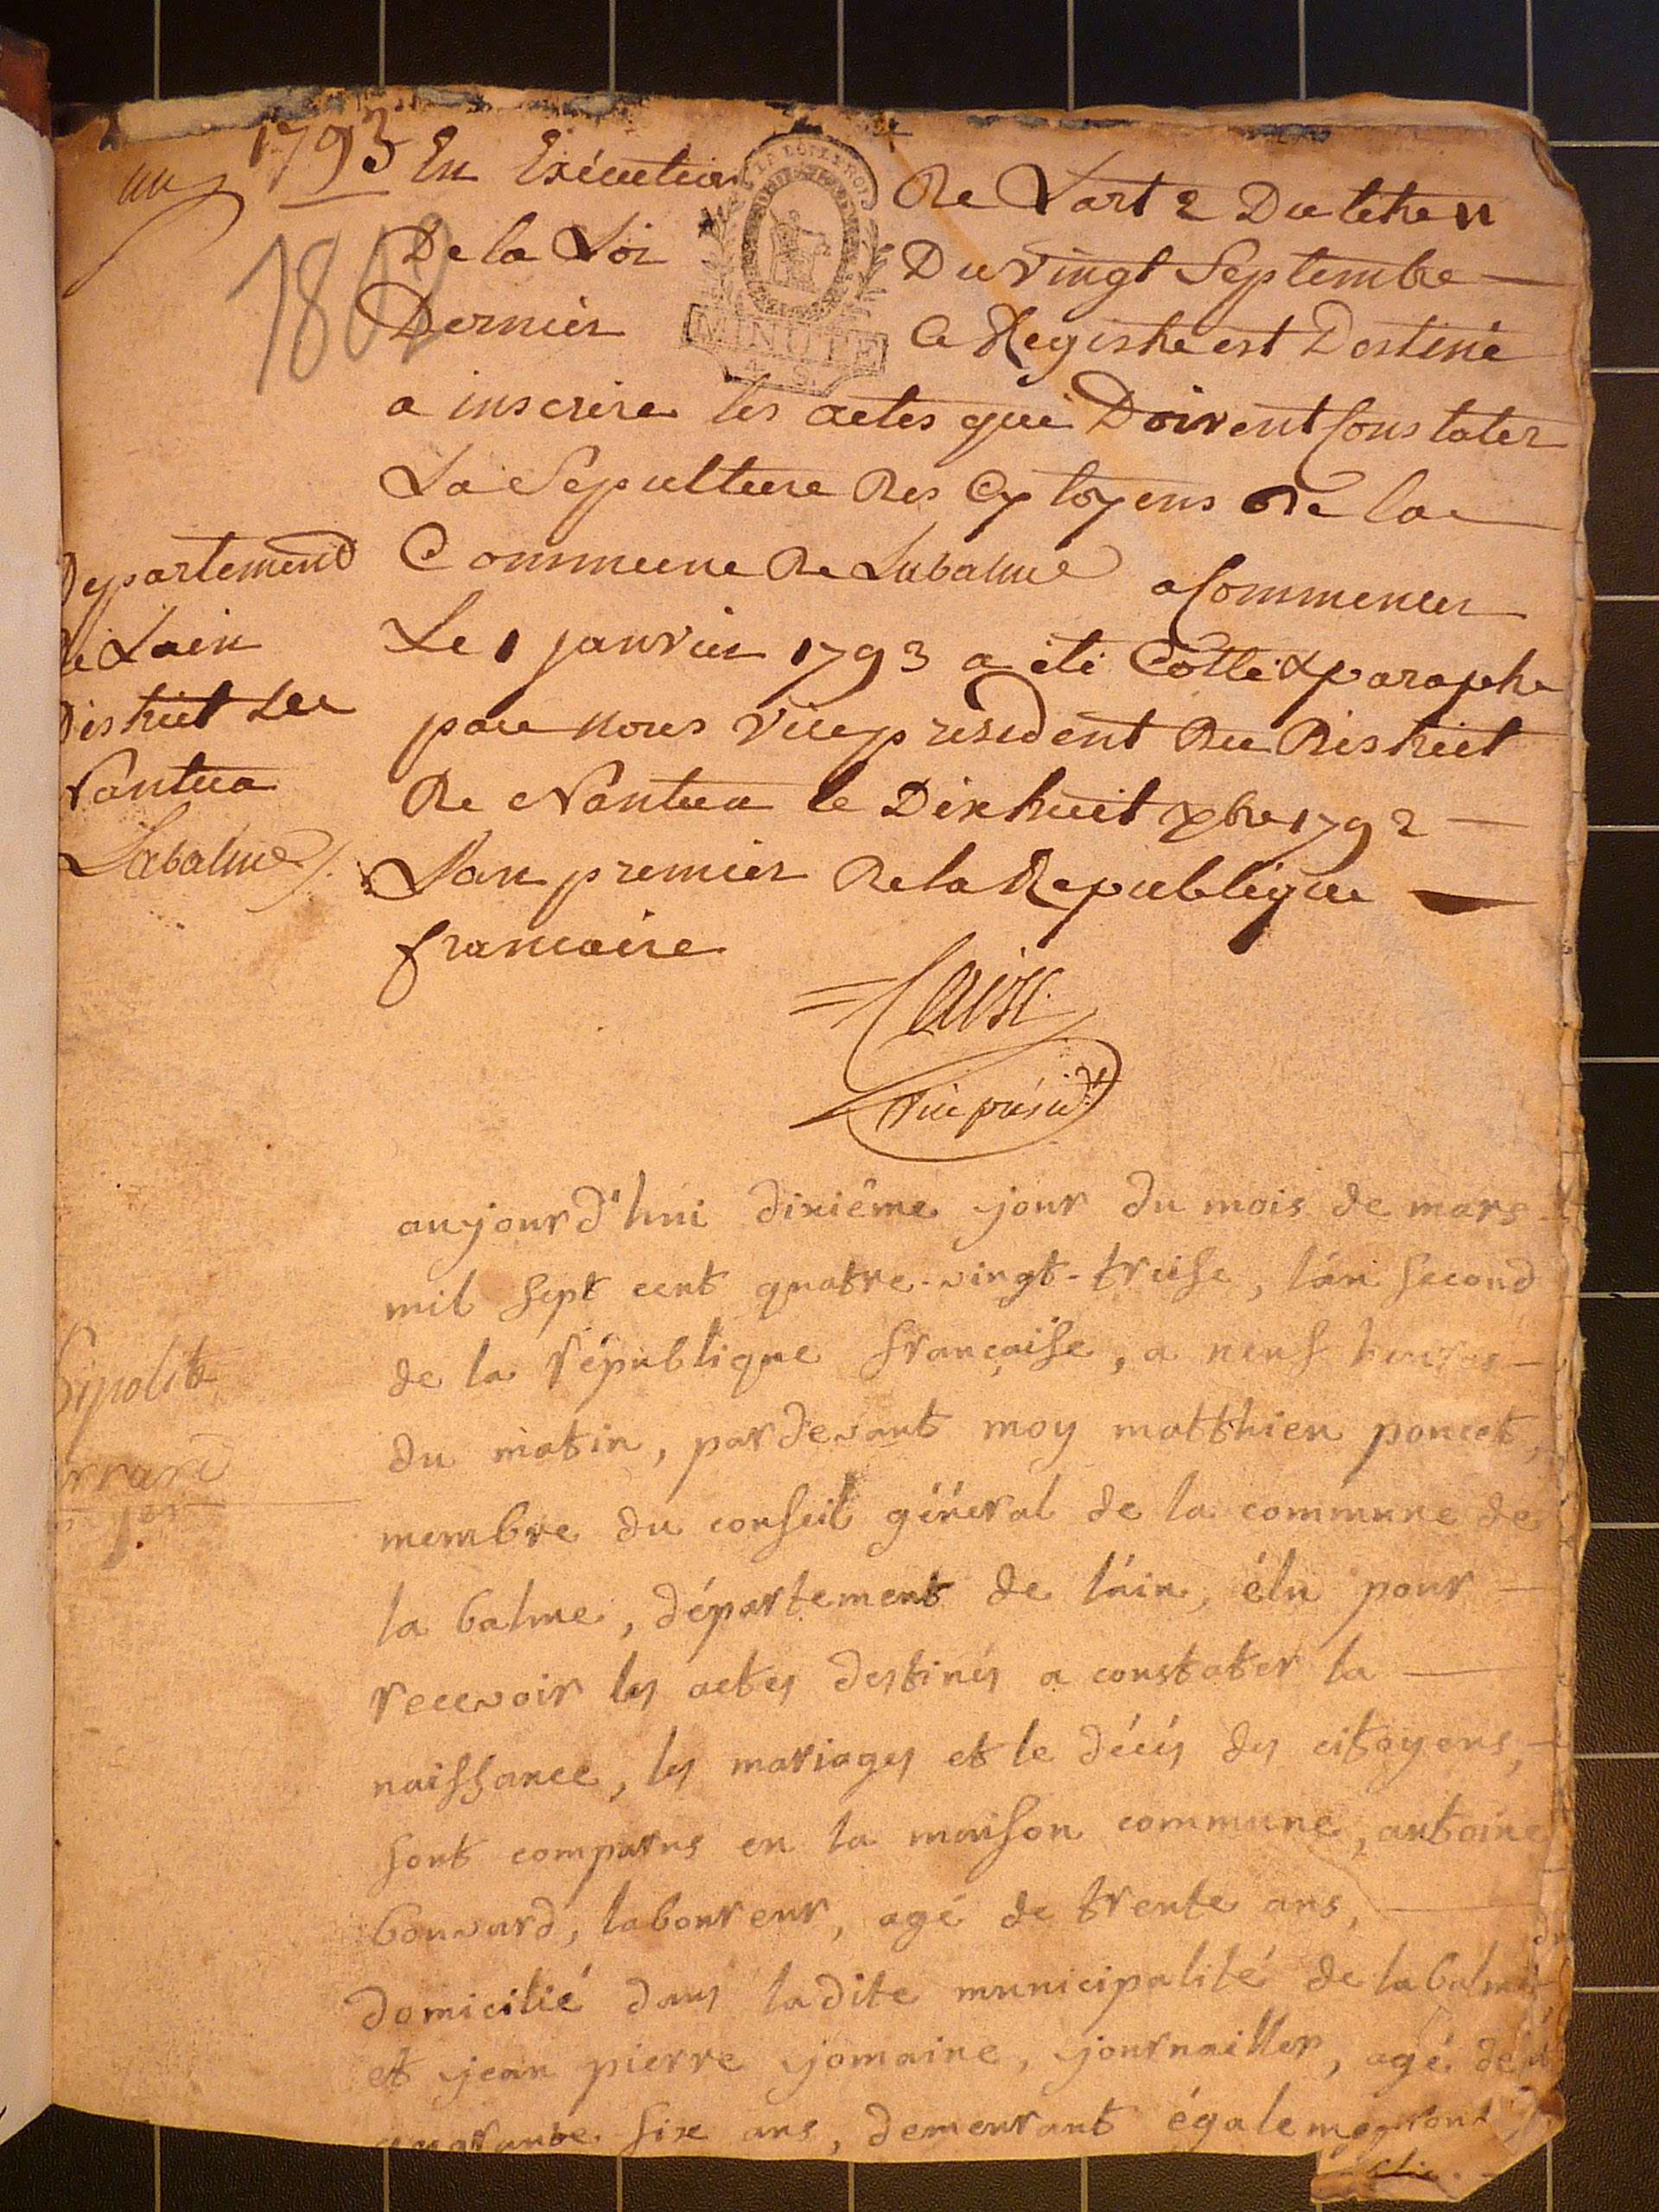 1793
un
1802
En Exécution De Lart 2 Du titre II
De la Loi Du vingt Septembre
Dernier Ce Registre est Destiné
MINUTE
4. S.
a inscrire les actes qui Doivent Constater
La Sepulture Des Cytoyens De la
Commune De Labalme a Commencer
Le 1 janvier 1793 a été Cotté & paraphé
par nous vice president Du District
De Nantua le Dix huit xbre 1792
L'an premier De la Republique
francaise
vice présidt
Departement
de Lain
District De
Nantua
Labalme
aujourd'hui dixiême jour du mois de mars
mil sept cent quatre-vingt-treise, l'an second
de la république française, a neuf heures
du matin, pardevant moy matthieu poncet,
membre du conseil général de la commune de
la balme, département de l'ain, élu pour
recevoir les actes destinés a constater la
naissance, les mariages et le décés des citoyens,
sont comparus en la maison commune, antoine
bouvard, laboureur, agé de trente ans,
domicilié dans ladite municipalité de labalme
et jean pierre jomaine, journailler, agé de
quarante six ans, demeurant égalem
hipolite
rrard
1er